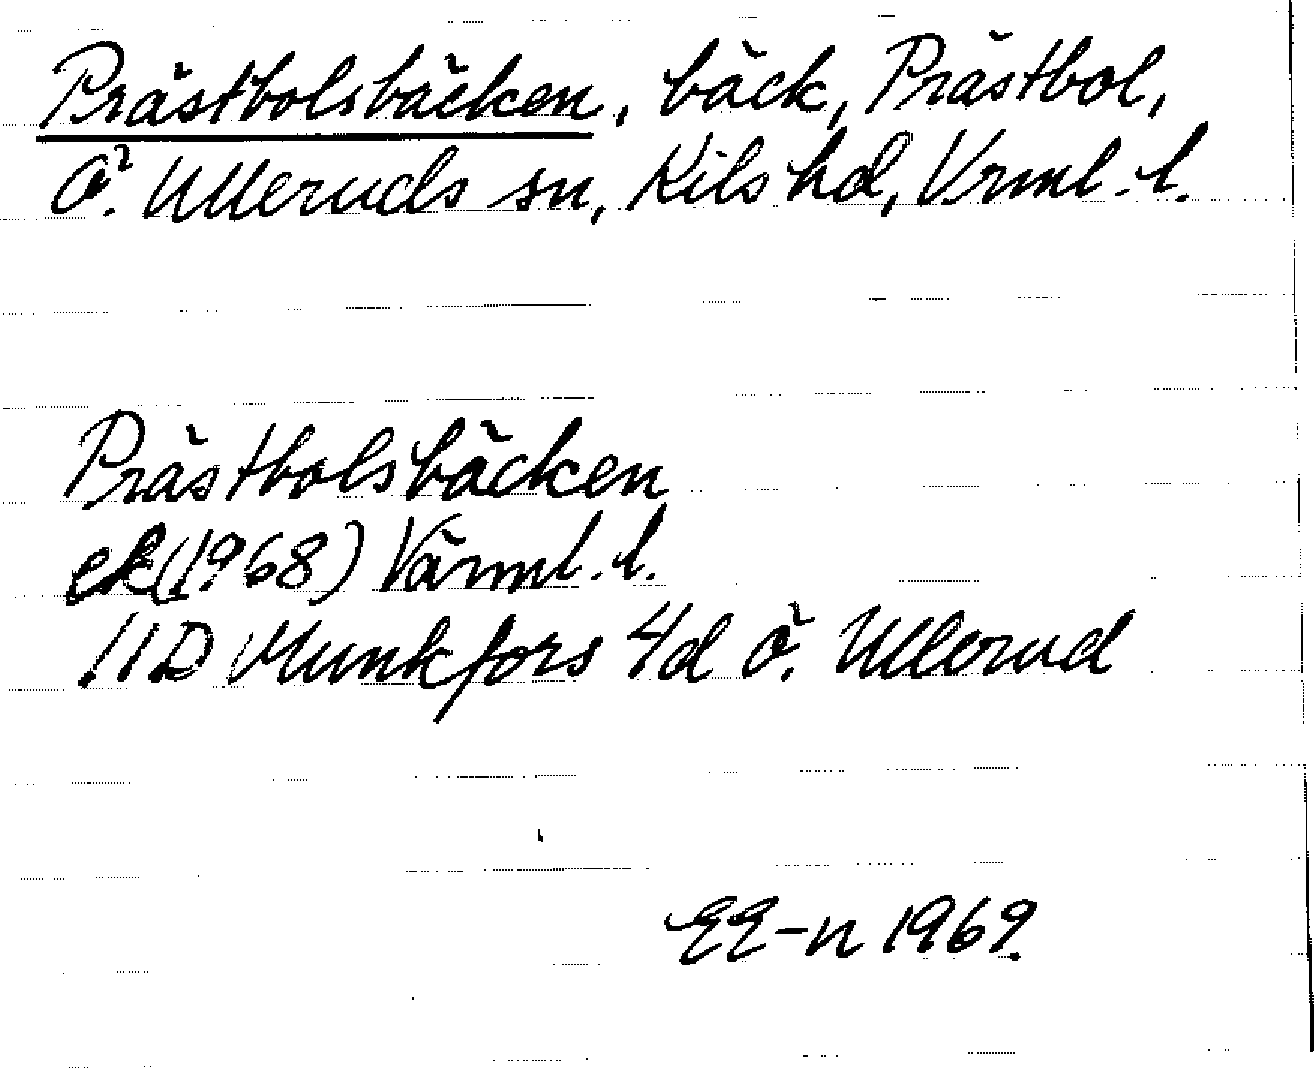 Prästbolsbäcken, bäck, Prästbol,
Ö. Ulleruds sn, Kils hd, Vrml. l.
Prästbolsbäcken
ek (1968) Värml. l.
11D Munkfors 4d Ö. Ullerud
EE-n 1969.